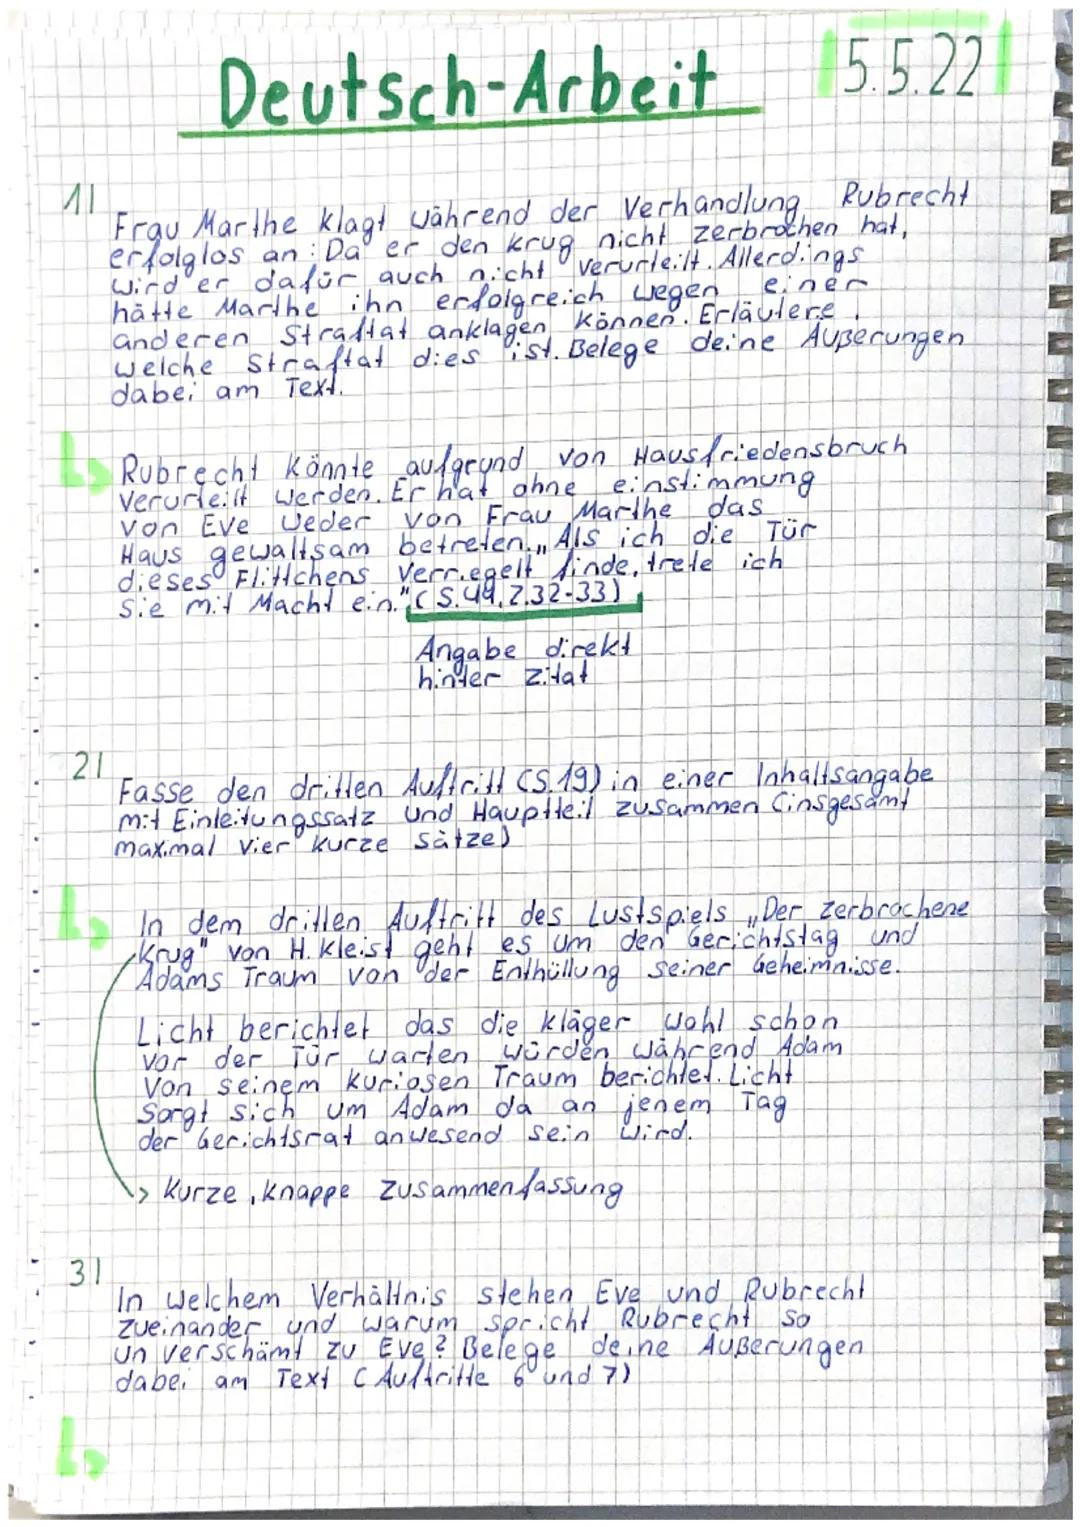 Deutsch-Arbeit
5.5.22
1)
Frau Marthe klagt während der Verhandlung Rubrecht
erfolglos an: Da er den Krug nicht zerbrochen hat,
wird er dafür auch nicht verurteilt. Allerdings
hätte Marthe ihn erfolgreich wegen einer
anderen Straftat anklagen können. Erläutere,
welche Straftat dies ist. Belege deine Äußerungen
dabei am Text.
Rubrecht könnte aufgrund von Hausfriedensbruch
verurteilt werden. Er hat ohne einstimmung
von Eve weder von Frau Marthe das
Haus gewaltsam betreten. „Als ich die Tür
dieses Flittchens verriegelt finde, trete ich
sie mit Macht ein." (S.49, Z.32-33)
Angabe direkt
hinter Zitat
2)
Fasse den dritten Auftritt (S.19) in einer Inhaltsangabe
mit Einleitungssatz und Hauptteil zusammen (insgesamt
maximal vier kurze sätze)
In dem dritten Auftritt des Lustspiels „Der zerbrochene
Krug" von H. Kleist geht es um den Gerichtstag und
Adams Traum von der Enthüllung seiner Geheimnisse.
Licht berichtet das die kläger wohl schon
vor der Tür warten würden während Adam
von seinem kuriosen Traum berichtet. Licht
sorgt sich um Adam da an jenem Tag
der Gerichtsrat anwesend sein wird.
> Kurze, knappe Zusammenfassung
3)
In welchem Verhältnis stehen Eve und Rubrecht
zueinander und warum spricht Rubrecht so
unverschämt zu Eve? Belege deine Äußerungen
dabei am Text (Auftritte 6 und 7)